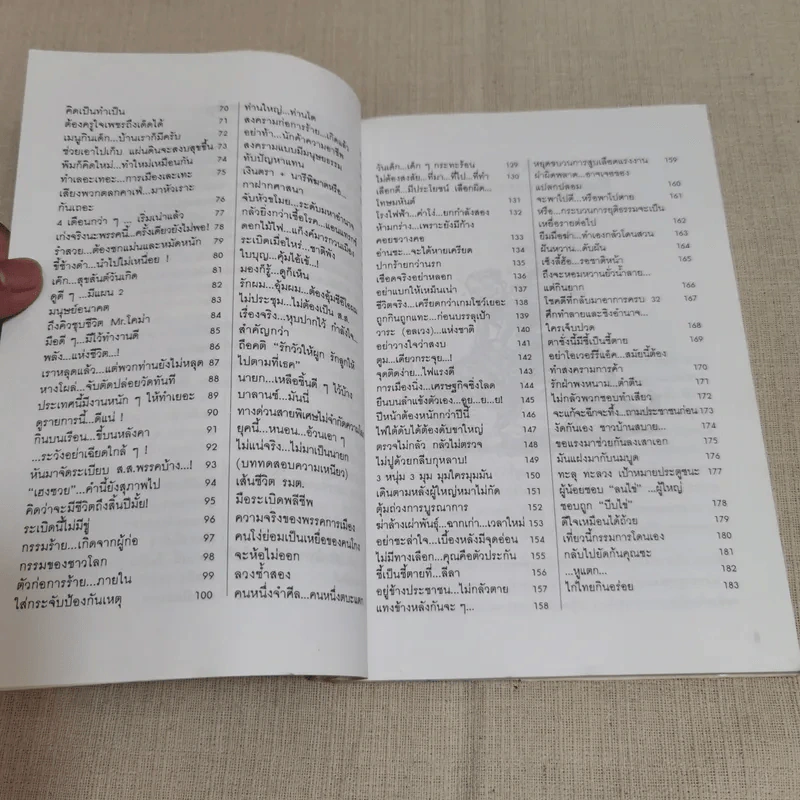 คิดเป็นทำเป็น 70
ต้องครูใจเพชรถึงเด็ดได้ 71
เมนูกินเด็ก...บ้านเราก็มีครับ 72
ช่วยเอาไปเก็บ แผ่นดินจะสงบสุขขึ้น 73
พิมก็คิดใหม่...ทำใหม่เหมือนกัน 74
ทำเลอะเทอะ...การเมืองเละเทะ 75
เสียงพวกตลกคาเฟ่...มาหัวเราะ
กันเถอะ 76
4 เดือนกว่า ๆ ... เริ่มเน่าแล้ว 77
เก่งจริงนะพรรคนี้...ครั้งเดียวยังไม่พอ! 78
รำสวย...ต้องชกแม่นและหมัดหนัก 79
ขี้ช้างดำ...นำไปไม่เหนื่อย ! 80
เด็ก...สุขสันต์วันเกิด 81
ดูดี ๆ ...มีแผน 2 82
มนุษย์อนาคต 83
ถึงคิวชุบชีวิต Mr.โคม่า 84
มือดี ๆ ...มีไว้ทำงานดี 85
พลัง...แห่งชีวิต...! 86
เราหลุดแล้ว...แต่พวกท่านยังไม่หลุด 87
หางโผล่...จับตัดปล่อยวัดทันที 88
ประเทศนี้มีงานหนัก ๆ ให้ทำเยอะ 89
ดูรายการนี้...ดีแน่ ! 90
กินบนเรือน...ขี้บนหลังคา 91
...ระวังอย่าเฉียดใกล้ ๆ ! 92
หันมาจัดระเบียบ ส.ส.พรรคบ้าง...! 93
"เฮงซวย"...คำนี้ยังสุภาพไป 94
คิดว่าจะมีชีวิตถึงสิ้นปีมั้ย! 95
ระเบิดนี้ไม่มีขู่ 96
กรรมร้าย...เกิดจากผู้ก่อ 97
กรรมของชาวโลก 98
ตัวก่อการร้าย...ภายใน 99
ใส่กระจับป้องกันเหตุ 100
ท่านใหญ่...ท่านโต
สงครามก่อการร้าย...เกิดแล้ว
อย่าทำ...นักค้าความอาชีพ
สงครามแบบมีมนุษยธรรม
ทับปัญหาแทน
เงินตรา + นารีพิฆาตหรือ...
กาฝากศาสนา
จับหัวขโมย...ระดับมหาอำนาจ
กลัวยิ่งกว่าเชื้อโรค...แอนแทรกซ์
ดอกไม้ไฟ...แก๊งค์มารกวนเมือง
ระเบิดเมื่อไหร่...ชาติพัง
ใบบุญ...คุ้มไอ้เข้...!
มองก็รู้...ดูก็เห็น
รักผม...อุ้มผม...ต้องอุ้ม
ไม่ประชุม...ไม่ต้องเป็น ส.ส.
เรื่องจริง...หุบปากไว้ กำลังใจ
สำคัญกว่า
ถือคติ "รักวัวให้ผูก รักลูกให้
ไปตามที่เธค"
นายก...เหลือชิ้นดี ๆ ไว้บ้าง
บาลานซ์...มันนี่
ทางด่วนสายพิเศษไม่จำกัดความ
ยุคนี้...หนอน...อ้วนเอา ๆ
ไม่แน่จริง...ไม่มาเป็นนายก
(บททดสอบความเหนียว)
เส้นชีวิต รมต.
มือระเบิดพลีชีพ
ความจริงของพรรคการเมือง
คนโง่ย่อมเป็นเหยื่อของคนโกง
จะห้อไม่ออก
ลวงซ้ำสอง
คนหนึ่งจำศีล...คนหนึ่งตบะแตก
วันเด็ก...เด็ก ๆ กระทะร้อน 129
ไม่ต้องสงสัย...ที่มา...ที่ไป...ที่ทำ 130
เลือกดี...มีประโยชน์ เลือกผิด...
โทษมหันต์ 131
โรงไฟฟ้า...ค่าโง่...ยกกำลังสอง 132
ห้ามกร่าง...เพราะยังมีก้าง
คอยขวางคอ 133
อ่านซะ...จะได้หายเครียด 134
ปากร้ายกว่านรก 135
เชือดจริงอย่าหลอก 136
อย่าแบกให้เหม็นเน่า 137
ชีวิตจริง...เครียดกว่าเกมโชว์เยอะ 138
ถูกกินถูกแทะ...ก่อนบรรลุเป้า 139
วาระ (อลเวง)...แห่งชาติ 140
อย่าวางใจว่าสงบ 141
ตูม...เดี๋ยวกระจุย...! 142
จุดติดง่าย...ไฟแรงดี 143
การเมืองนิ่ง...เศรษฐกิจซิ่งโลด 144
ยืนบนลำแข้งตัวเอง...อูย...ย...ย! 145
ปีหน้าต้องหนักกว่าปีนี้ 146
ไฟใต้ดับได้ต้องดับขาใหญ่ 147
ตรวจไม่กลัว กลัวไม่ตรวจ 148
ไม่ปูด้วยกลีบกุหลาบ! 149
3 หนุ่ม 3 มุม มุมใครมุมมัน 150
เดินตามหลังผู้ใหญ่หมาไม่กัด 151
คุ้มถ่วงการบูรณาการ 152
ฆ่าล้างเผ่าพันธุ์...ฉากเก่า...เวลาใหม่ 153
อย่าชะล่าใจ...เบื้องหลังมีจุดอ่อน 154
ไม่มีทางเลือก...คุณคือตัวประกัน 155
ชี้เป็นชี้ตายที่...ลีลา 156
อยู่ข้างประชาชน...ไม่กลัวตาย 157
แทงข้างหลังกันจะ ๆ... 158
หยุดขบวนการสูบเลือดแรงงาน 159
ผ่าผิดพลาด...อาจเจอของ
แปลกปลอม 160
จะพาไปดี...หรือพาไปตาย 161
หรือ...กระบวนการยุติธรรมจะเป็น
เหยื่อรายต่อไป 162
ยืมมือฆ่า...ทำเองกลัวโดนสวน 163
ฝันหวาน...ดับฝัน 164
เซ็งลี้ฮ้อ...รอชาติหน้า 165
ถึงจะหอมหวานยั่วน้ำลาย...
แต่กินยาก 166
โชคดีที่กลับมาอาการครบ 32 167
ศึกทำลายและชิงอำนาจ...
ใครเจ็บปวด 168
ตาชั่งนี้มีชีวิตเป็นเดิมพัน 169
อย่าไอเวอร์รี่แอ๊ค...สมัยนี้ต้อง
ทำสงครามการค้า 170
รักฝ่าพงหนาม...ดำดึน 171
ไม่กลัวพวกชอบทำเสียว 172
จะแก้จะฉีกจะทิ้ง...ถามประชาชนก่อน 173
งัดกันเอง ชาวบ้านสบาย... 174
ขอแรงมาช่วยกันลงเสาเอก 175
มันแฝงมากับนมบูด 176
ทะลุ ทะลวง เป้าหมายประตูชนะ 177
ผู้น้อยชอบ "ลนไข่" ...ผู้ใหญ่
ชอบถูก "บีบไข่" 178
ดีใจเหมือนได้ถ้วย 179
เที่ยวนี้กรรมการโดนเอง 180
กลับไปยัดกันคุณซะ 181
...หูแตก... 182
ไก่ไทยกินอร่อย 183